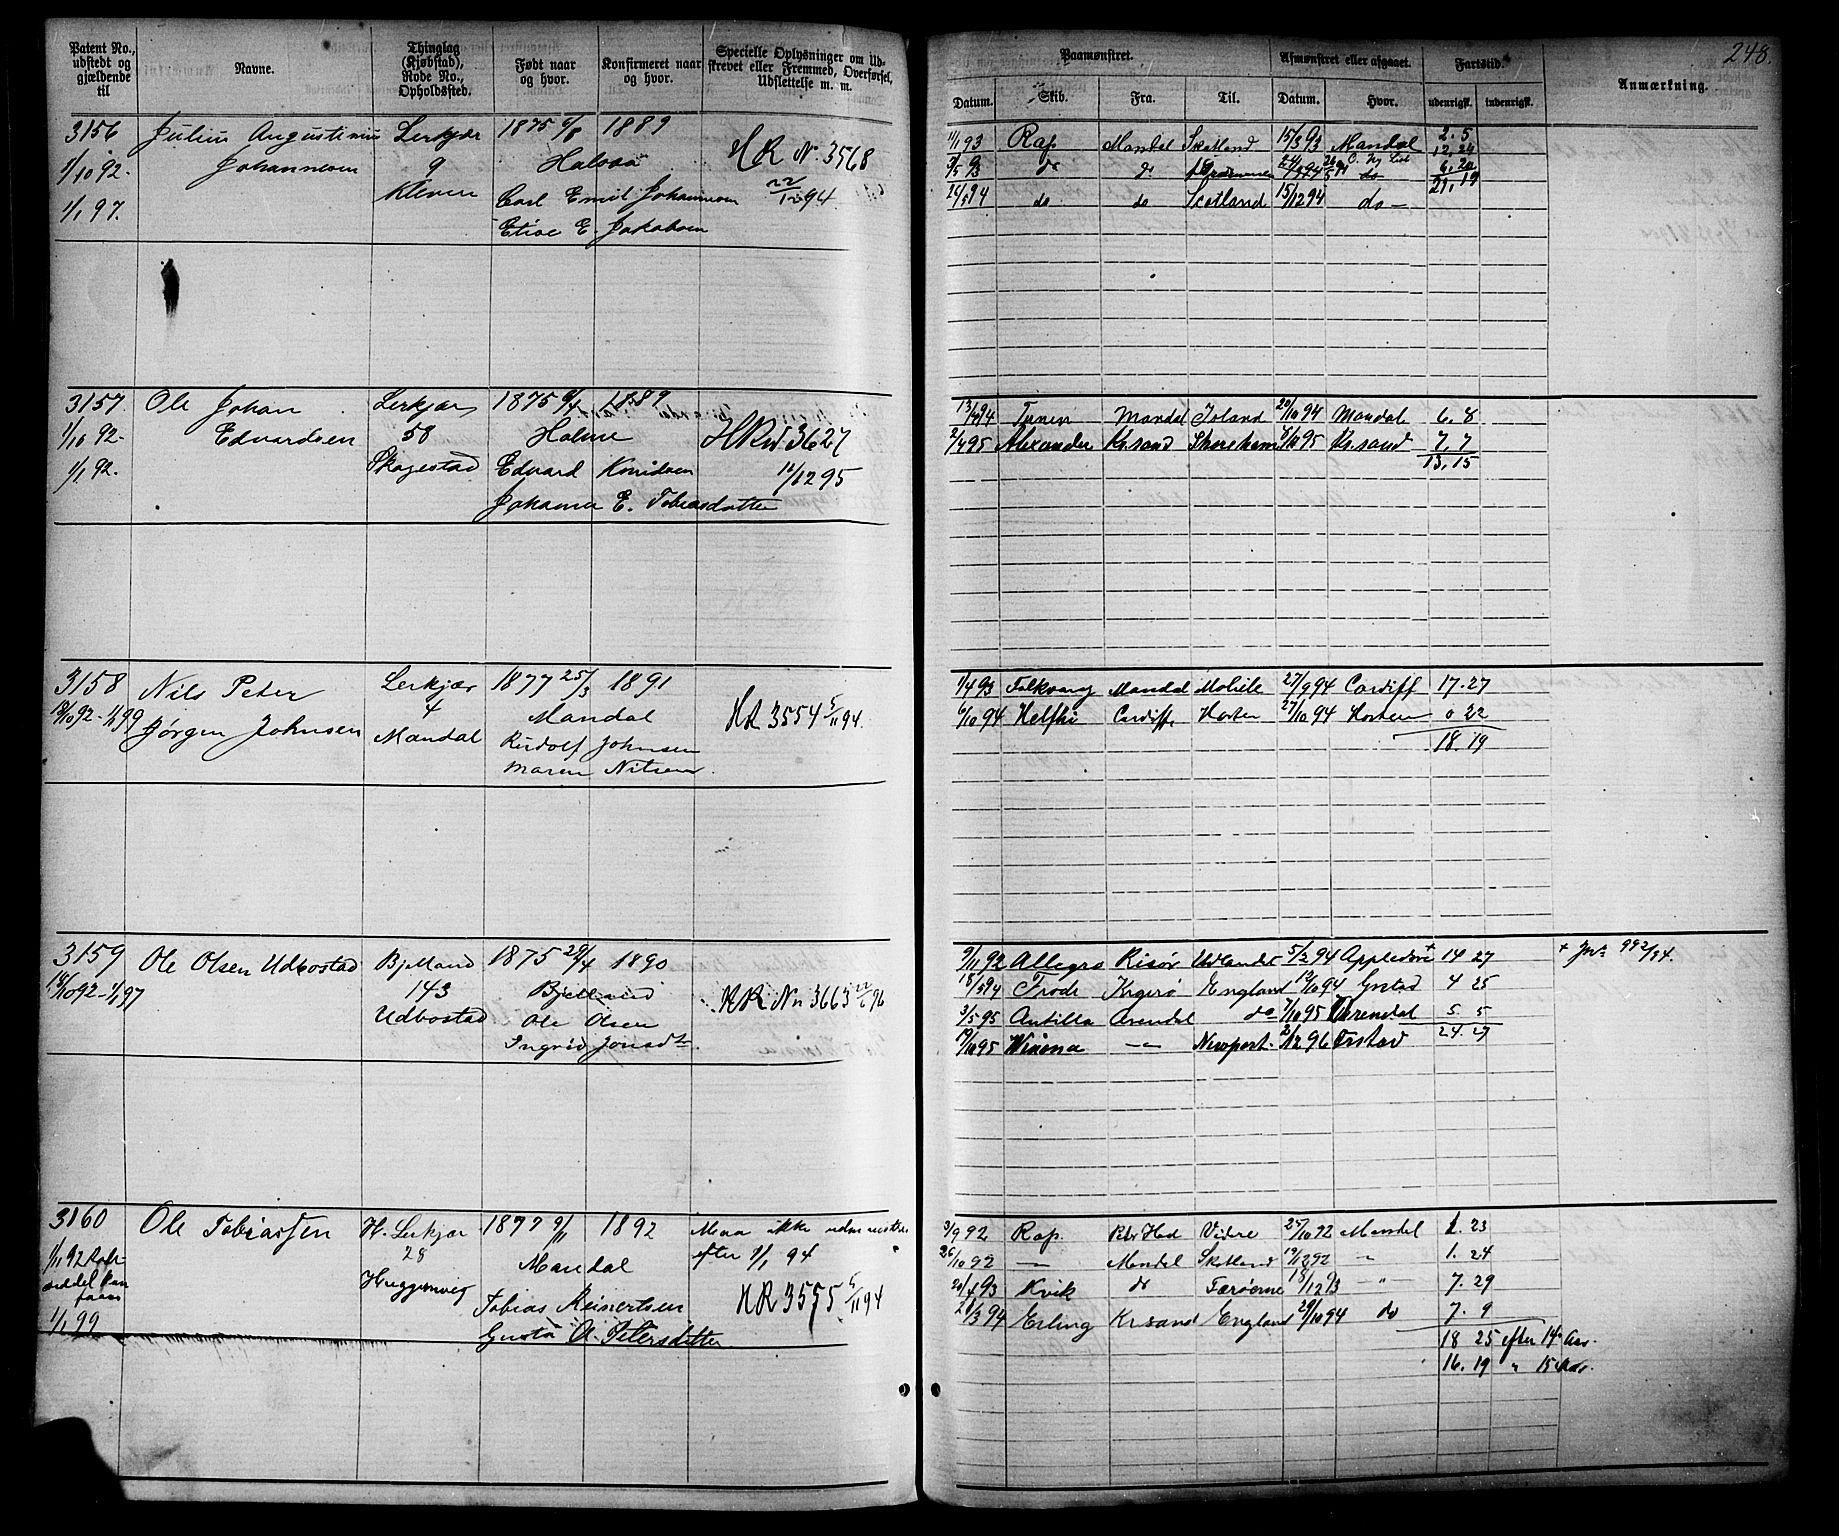 248.
Patent No., udstedt og gjældende til
Navne.
Thinglag (Kjøbstad), Rode No., Opholdssteb.
Født naar og hvor.
Konfirmeret naar og hvor.
Specielle Oplysninger om Udskrevet eller Fremmed, Overførsel, Udslettelse m. m.
Paamønstret.
Afmønstret eller afgaaet.
Fartstid.
Anmærkning.
Datum.
Skib.
Fra.
Til.
Datum.
Hvor.
udenrigsk.
indenrigsk.
3156 Julius Augustinius Lerkjær 1875 6/8 1889
Johannesen 9 Halsaa HR N. 3568
1/10 92. Kleven Carl Emil Johannesen 22/12 94
1/1 97. Elise E. Jakobsen
11/1 93 Rap Mandal Skotland 15/3 93 Mandal 2. 5
do do 12. 24
6. 20
24/5 94 do do Scotland 15/12 94 do 21. 19
3157 Ole Johan Lerkjær 1875 6/4 1889
1/10 92. Edvardsen 58 Holme HR N. 3627
1/1 92. Skogestad Edvard Konridsen 11/12 95
Johanna E. Tobiasdatter
13/4 94 Mandal Island 20/10 94 Mandal 6. 8
2/4 95 Alexander Kr.sand Shoreham 95 Kr.sand 7. 7
13. 15
3158 Nils Peter Lerkjær 1877 25/3 1891
18/10 92-1/1 99 Jørgen Johnsen 4 Mandal HR 3554 5/11 94.
Mandal Rudolf Johnsen
Maren Nilsen.
1/4 93 Falkvang Mandal Mobile 27/9 94 Cardiff 17. 27
6/10 94 Helfki Cardiff Horten 27/10 94 Horten 0 22
18. 19
3159 Ole Olsen Udbostad Bjelland 1875 29/4 1890
18/10 92-1/1 97 143 Bjelland HR No 3663 96
Udbostad Ole Olsen
Ingrid Jonsdtr
9/11 92 Allegro Risør Udlandet 5/2 94 Appledore + 14 27 + Jvr 992/94.
18/5 94 Frode Kragerø England 12/10 94 4 25
3/5 95 Antilla Arendal do 7/10 95 Arendal 5. 5
19/10 95 Winona — Newport. 2/12 96 24. 27
3160 Ole Tobiassen H. Lerkjær 1877 9/1 1892 Maa ikke udmønstres
28 Mandal efter 1/1 94
1/1 92 Huggenvig Tobias Meinertsen HR 3555 5/11 94
1/1 99 Gusta A. Petersdatter
3/9 92 Rap. Vidre 25/10 92 Mandal 1. 23
26/10 92 — Mandal Skotland 19/12 92 " 1. 24
20/4 93 Kvik do Færøerne 18/12 93 — " — 7. 29
28/3 94 Erling Kr.sand England 29/10 94 do 7. 9
18 25 efter 14 Aar.
16. 19 " 15 Aar.